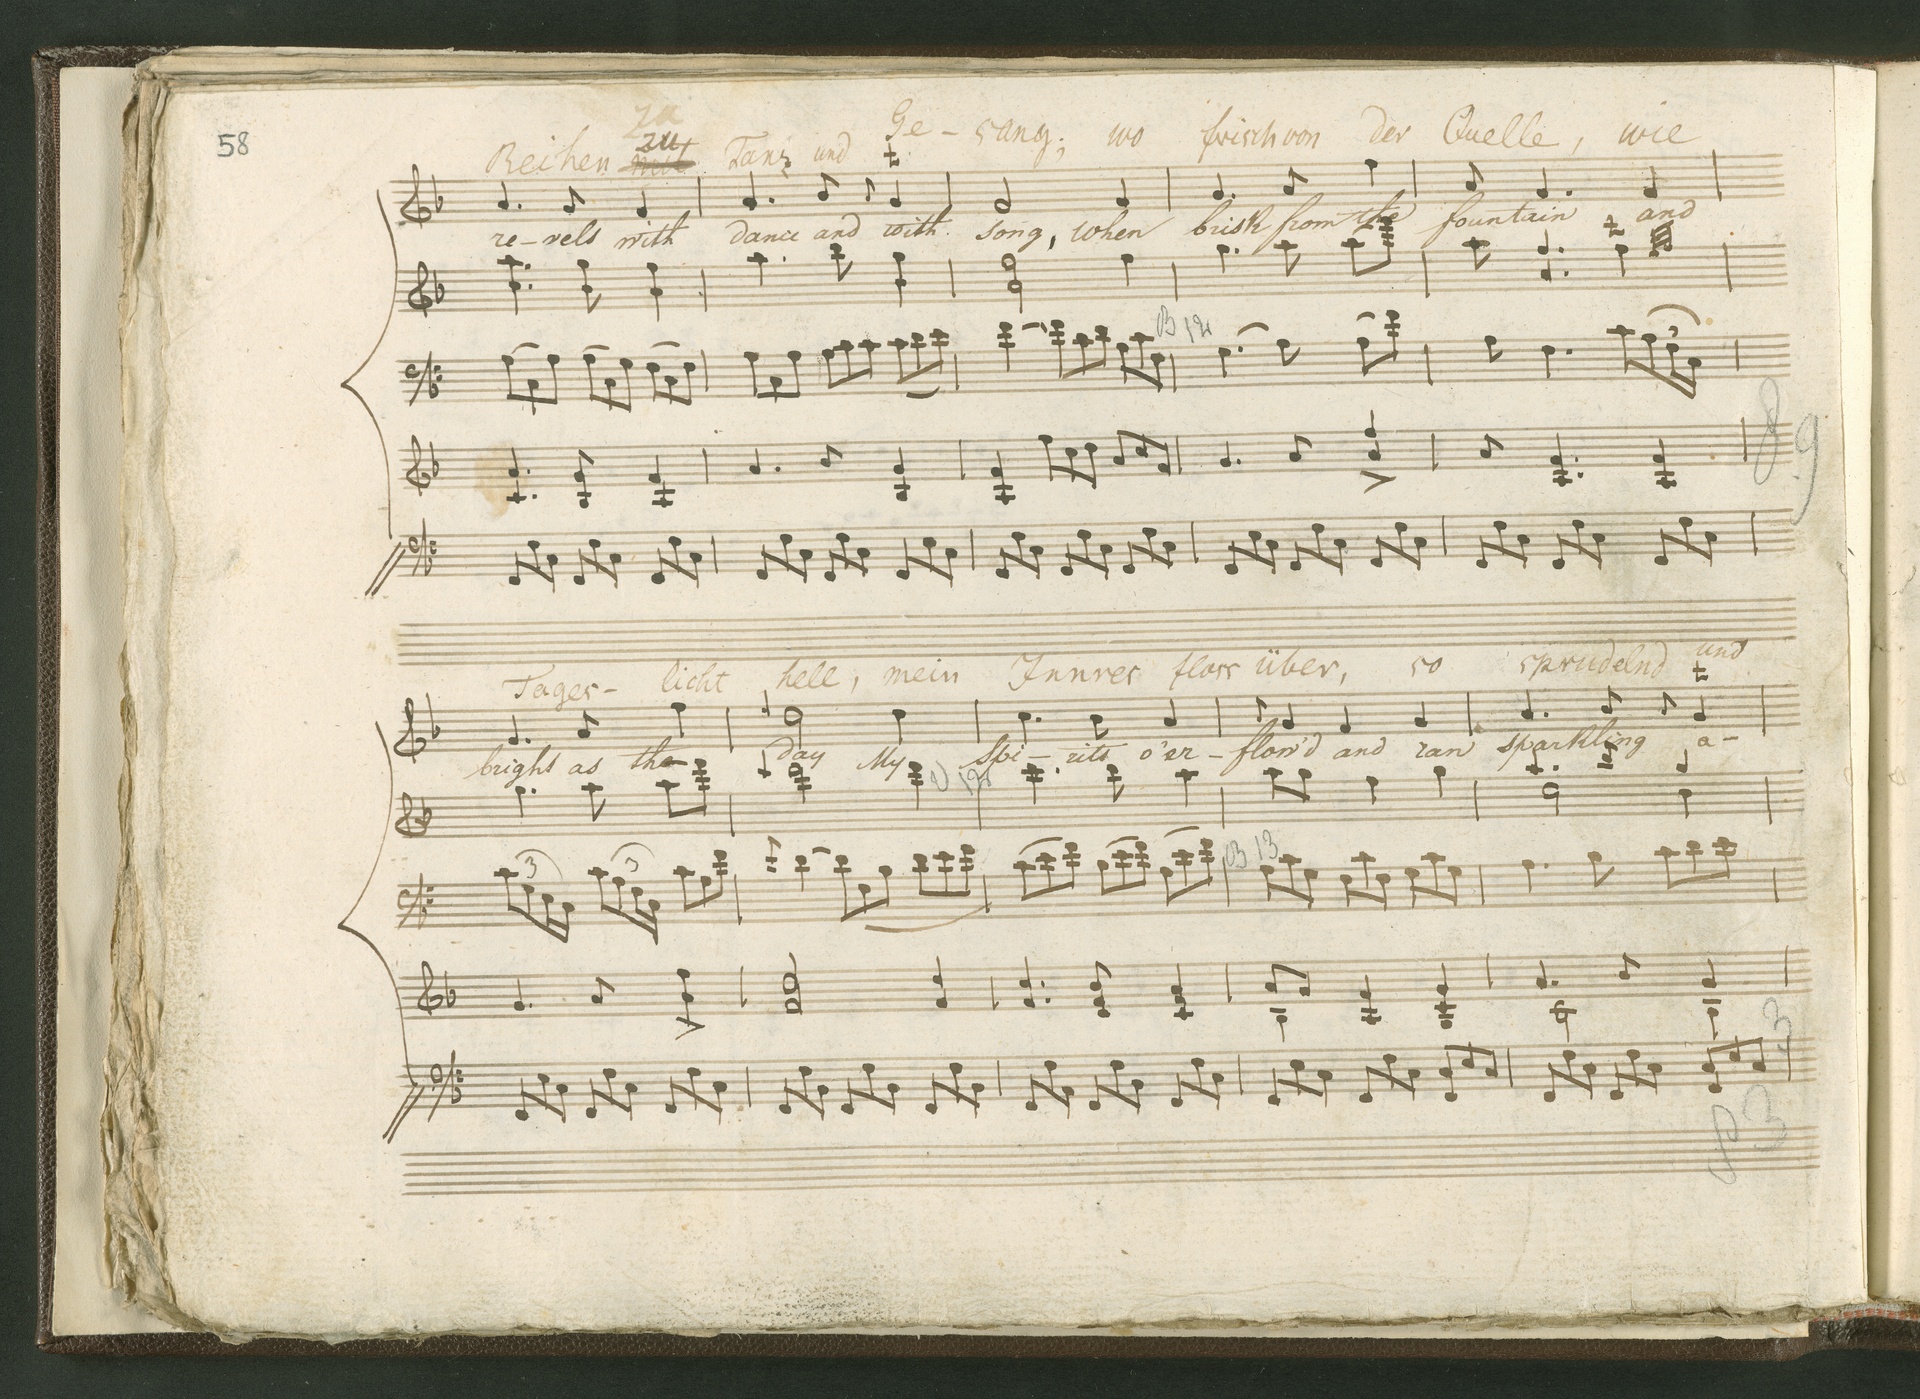 58
zu
Reihen mit zu Tanz und Ge - sang; wo frisch von der Quelle, wie
re-vels with dance and with song, when brisk from the fountain and
B 12
89
Tages- licht hell, mein Innres floss über, so sprudelnd und
bright as the day My spi - rits o'er - flow'd and ran sparkling a-
3 3
B 13
3